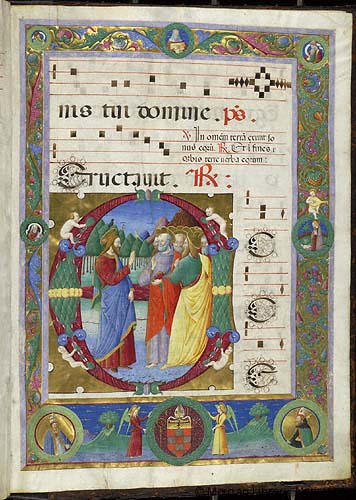 nis tui domine. ps.
℣ In omnem terrā exiuit so
nus eoꝝ. ℟ Et i fines
orbis terre uerba eorum:
Eructauit. ℟: